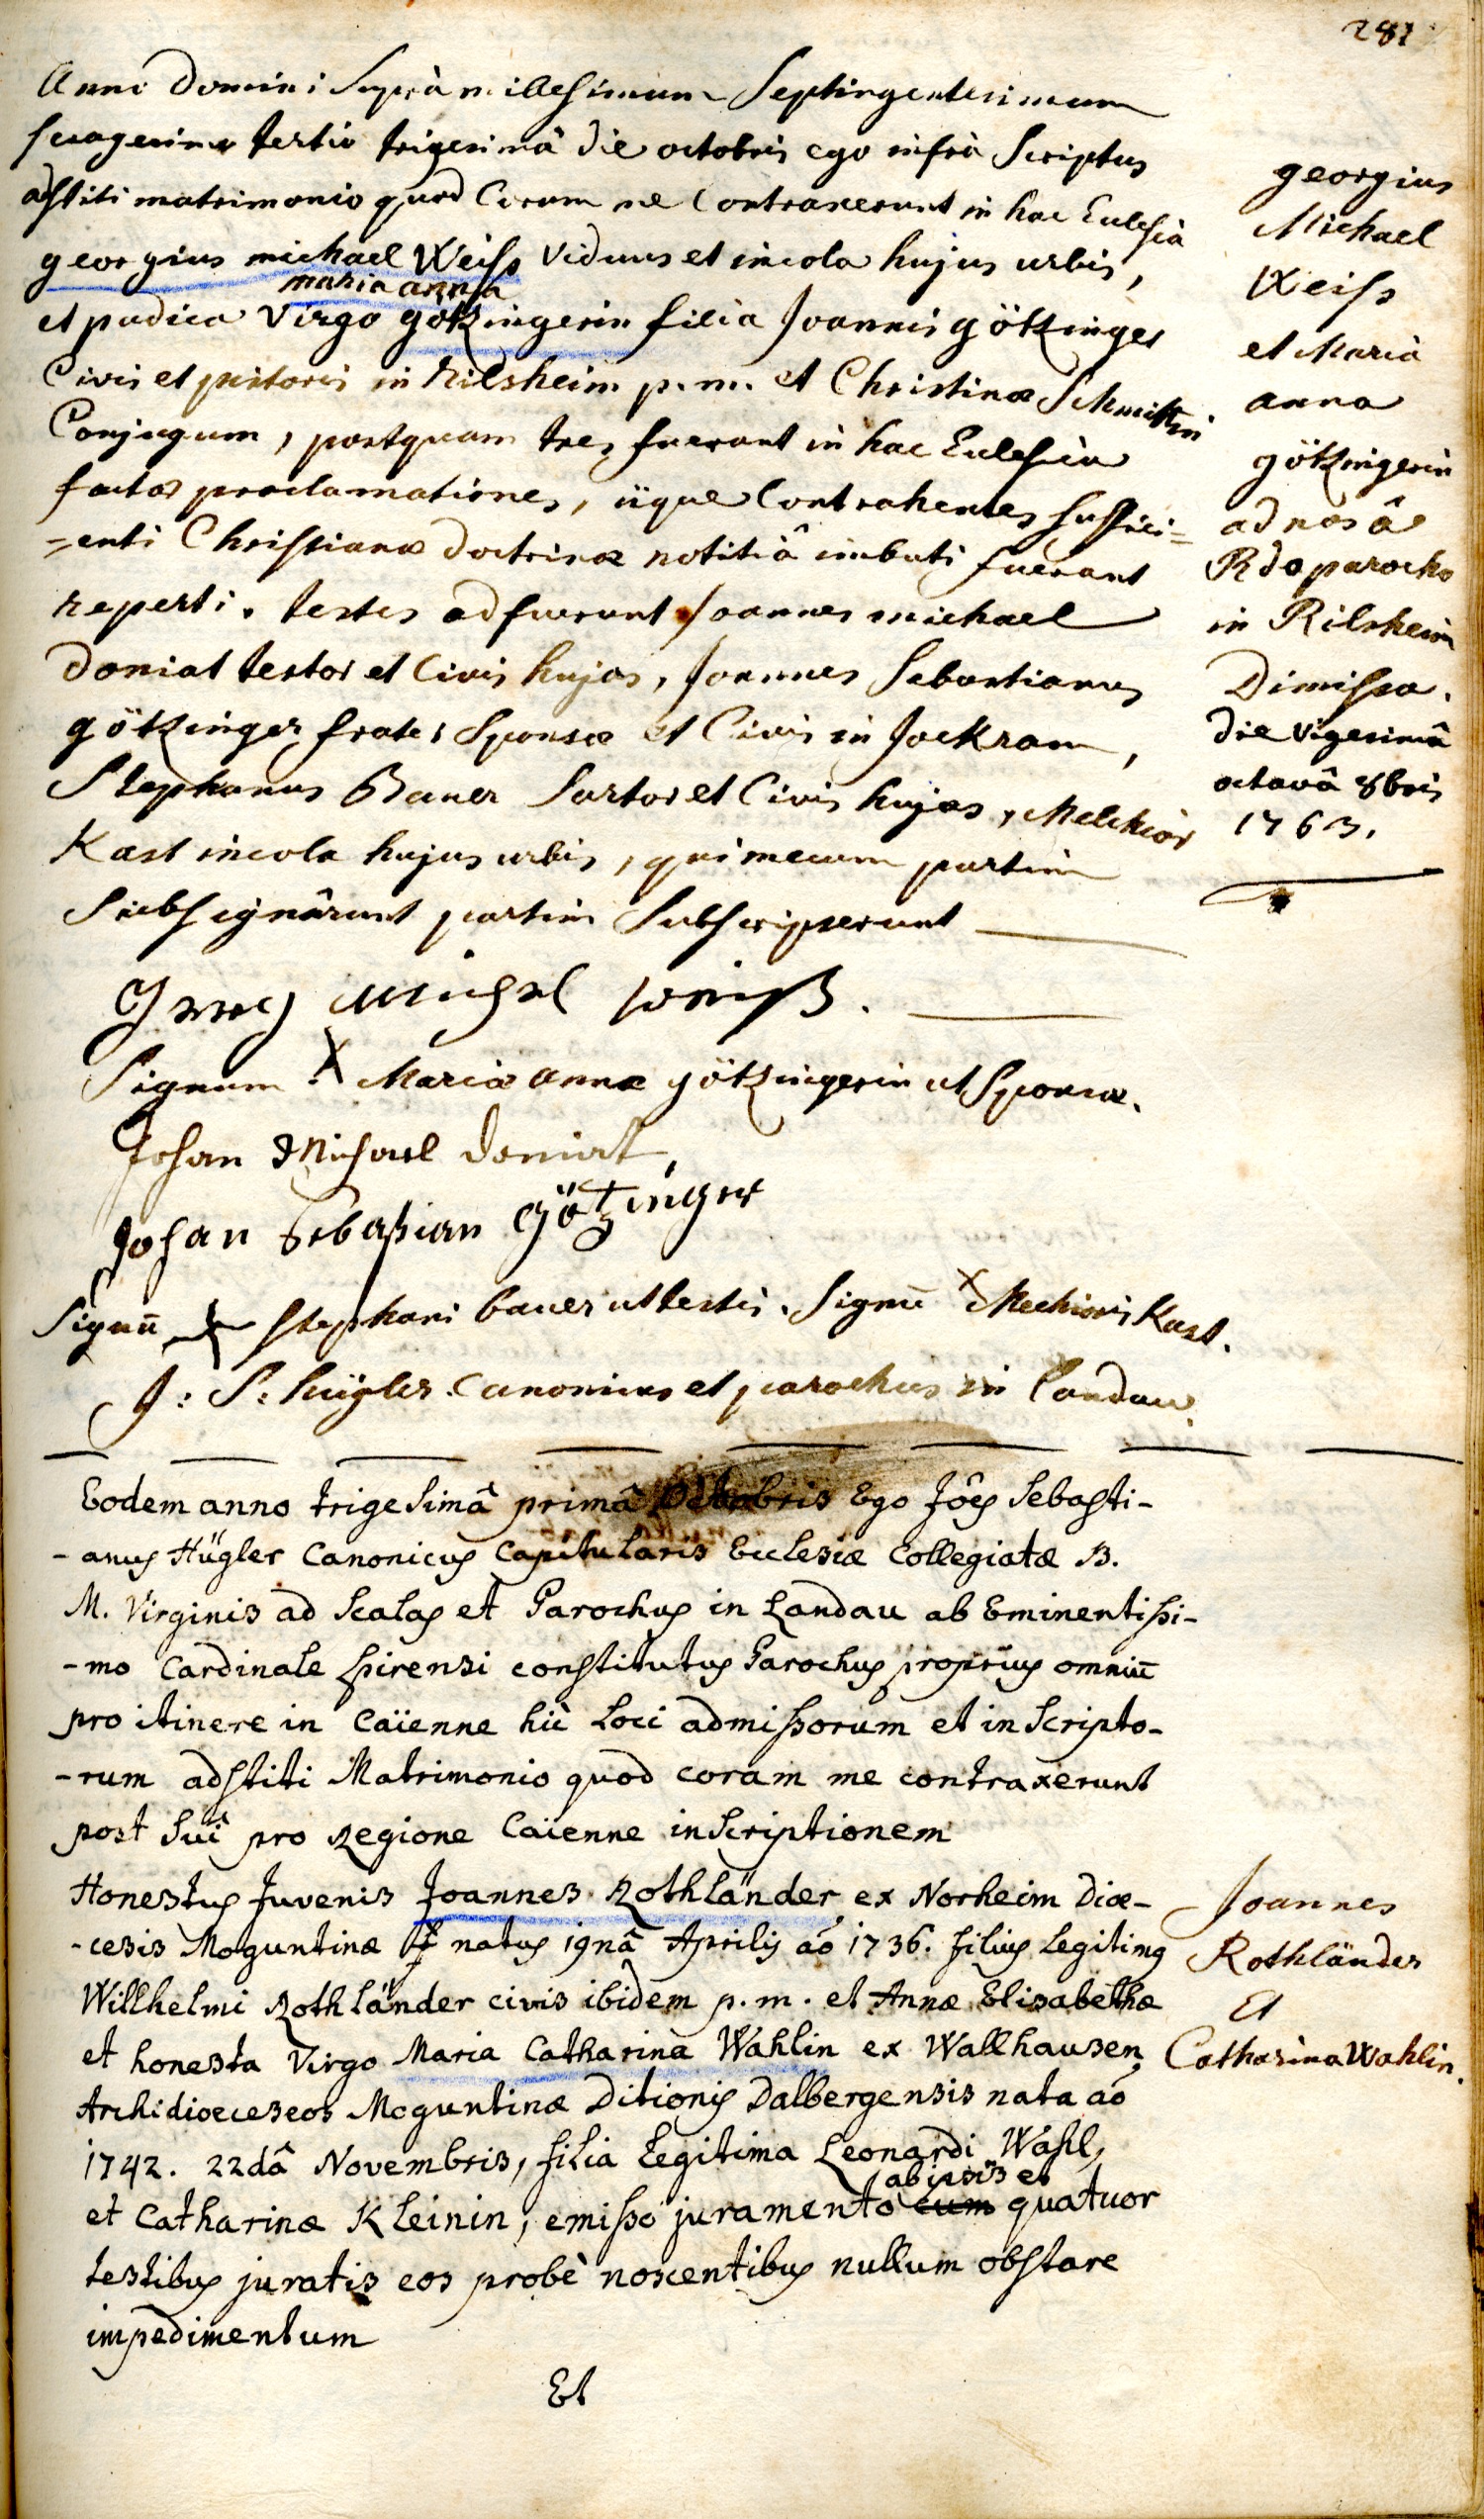 287
Anno Domini Suprà millesimum Septingentesimum
sexagesimo tertio trigesimâ die octobris ego infrà Scriptus
astiti matrimonio quod Coram me Contraxerunt in hac Eclesiâ
georgius michael Weiss viduus et incola hujus urbis,
maria anna
et pudica Virgo götzingerin filia Joannis götzinger
Civis et pistoris in Rilsheim p. m. et Christinæ Schmittin
Conjugum, postquam tres fuerant in hac Eclesiâ
factæ proclamationes, iique Contrahentes suffici=
=enti Christianæ doctrinæ notitiâ imbuti fuerant
reperti. testes adfuerunt Joannes michael
doniat textor et Civis hujas, Joannes Sebastianus
götzinger frater Sponsæ et Civis in Jockram,
Stephanus Bauer Sartor et Civis hujas, Melchior
Kast incola hujus urbis, qui mecum partim
Subsignârunt partim Subscripserunt
georgius
Michael
Weiss
et Maria
anna
götzingerin
ad nos â
Rdo parocho
in Rilsheim
Dimissa.
die vigesimâ
octavâ 8bris
1763.
Jerrg Michel weiß.
Signum X Mariæ annæ götzingerin ut Sponsæ.
Johan Michael Doniat,
Johan Sebastian Götzinger
Signū X Stephani bauer ut testis. Signū X Mechioris Kast.
J: S: hügler Canonicus et parochus in Landau.
Eodem anno trigesimâ primâ Octobris Ego Jôes Sebasti-
-anus Hügler Canonicus Capitularis Ecclesiæ Collegiatæ B.
M. Virginis ad Scalas et Parochus in Landau ab Eminentissi-
-mo Cardinale Spirensi constitutus Parochus proprius omniū
pro itinere in Caïenne hic Loci admissorum et inscripto-
-rum adstiti Matrimonio quod coram me contraxerunt
post Sui pro Regione Caïenne inscriptionem
Honestus Juvenis Joannes Rothländer ex Norheim Diæ-
-cesis Moguntinæ natus 19nâ Aprilis aô 1736. filius Legitimg
Willhelmi Rothländer civis ibidem p. m. et Annæ Elisabethæ
et honesta Virgo Maria Catharina Wahlin ex Wallhausen
Archidioeceseos Moguntinæ Ditionis Dalbergensis nata aô
1742. 22dâ Novembris, filia legitima Leonardi Wahl,
ab ipsis et
et Catharinæ Kleinin, emisso juramento cum quatuor
testibus juratis eos probè noscentibus nullum obstare
impedimentum
Joannes
Rothländer
Et
Catharina Wahlin.
Et